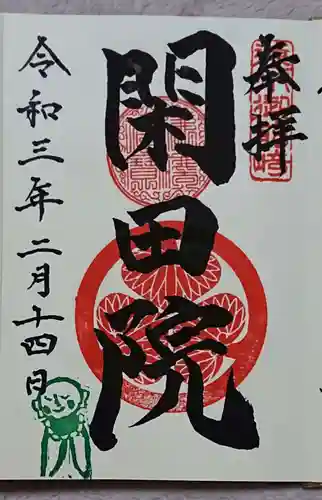 奉拝
閑田院
令和三年二月十四日